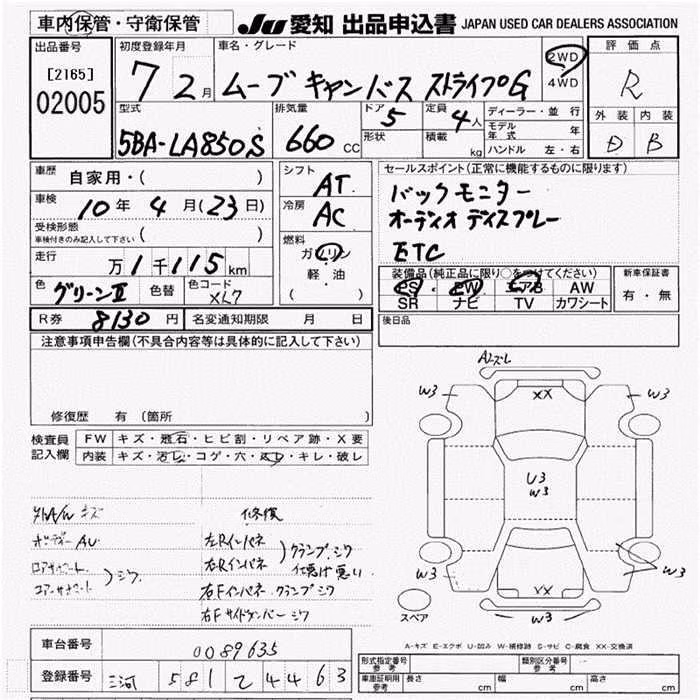 車内保管・守衛保管
JU 愛知 出品申込書 JAPAN USED CAR DEALERS ASSOCIATION
出品番号
[2165]
02005
初度登録年月
7 2月
車名・グレード
ムーブキャンバス ストライプG
2WD
4WD
評価点
R
外装 内装
D B
型式
5BA-LA850S
排気量
660 CC
ドア 5
形状
定員 4人
積載 kg
ディーラー・並行
モデル年式 年
ハンドル 左・右
車歴 自家用・( )
車検 10年 4月(23日)
受検形態
車検付きのみ記入して下さい ( )
走行 万1千115km
色 グリーンⅡ 色替 色コード XL7
シフト AT
冷房 AC
燃料
ガソリン
軽・油
( )
セールスポイント(正常に機能するものに限ります)
バックモニター
オーディオディスプレー
ETC
装備品(純正品に限り○をつけてください)
PS PW エアB AW
SR ナビ TV カワシート
新車保証書
有・無
R券 8130円 名変通知期限 月 日
後日品
注意事項申告欄(不具合内容等は具体的に記入して下さい)
修復歴 有(箇所
検査員記入欄
FW キズ・飛石・ヒビ割・リペア跡・X要
内装 キズ・汚レ・コゲ・穴・スレ・キレ・破レ
修復
左Rインパネ
左Rインパネ
クランプ、シワ
仕掛け悪い
右Fインパネ クランプ シワ
右F サイドメンバー シワ
シワ
W3 XX W3
U3
W3
W3 XX W3
W3
スペア
A-キズ E-エクボ U-凹み W-補修跡 S-サビ C-腐食 XX-交換済
車台番号 0089635
登録番号 三河 581 て 4463
形式指定番号 参考
類別区分番号 参考
車庫証明用 参考 長さ cm 幅 cm 高さ cm